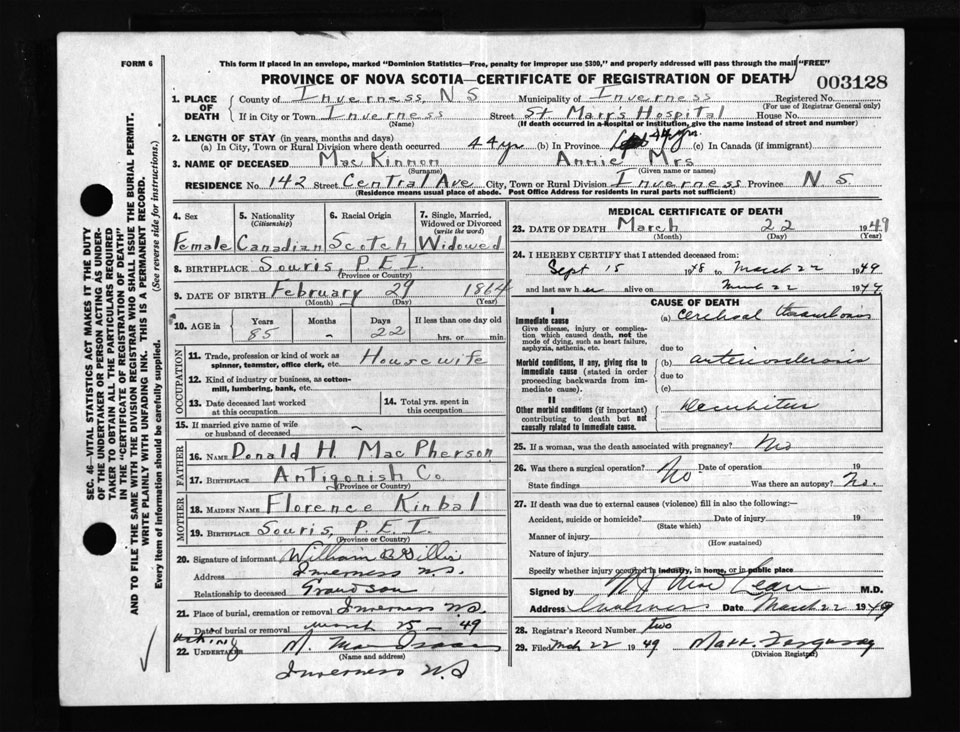 FORM 6
This form if placed in an envelope, marked "Dominion Statistics—Free, penalty for improper use $300," and properly addressed will pass through the mail "FREE"
PROVINCE OF NOVA SCOTIA—CERTIFICATE OF REGISTRATION OF DEATH
003128
1. PLACE OF DEATH County of Inverness, N S Municipality of Inverness Registered No.
(For use of Registrar General only)
If in City or Town Inverness Street St. Mary's Hospital House No.
(Name) (If death occurred in a Hospital or institution, give the name instead of street and number)
2. LENGTH OF STAY (in years, months and days)
(a) In City, Town or Rural Division where death occurred 44 yr (b) In Province 44 yr. (c) In Canada (if immigrant)
3. NAME OF DECEASED Mac Kinnon Annie Mrs
(Surname) (Given name or names)
RESIDENCE No. 142 Street Central Ave City, Town or Rural Division Inverness Province N. S.
(Residence means usual place of abode. Post Office Address for Residents in rural parts not sufficient)
SEC. 46—VITAL STATISTICS ACT MAKES IT THE DUTY
OF THE UNDERTAKER OR PERSON ACTING AS UNDER-
TAKER TO OBTAIN ALL THE PARTICULARS REQUIRED
IN THE "CERTIFICATE OF REGISTRATION OF DEATH"
AND TO FILE THE SAME WITH THE DIVISION REGISTRAR WHO SHALL ISSUE THE BURIAL PERMIT.
WRITE PLAINLY WITH UNFADING INK. THIS IS A PERMANENT RECORD.
Every item of information should be carefully supplied. (See reverse side for instructions.)
4. Sex 5. Nationality (Citizenship) 6. Racial Origin 7. Single, Married, Widowed or Divorced (write the word)
Female Canadian Scotch Widowed
8. BIRTHPLACE Souris, P.E.I.
(Province or Country)
9. DATE OF BIRTH February 29 1864
(Month) (Day) (Year)
10. AGE in Years Months Days If less than one day old
85 – 22 hrs. or min.
OCCUPATION
11. Trade, profession or kind of work as spinner, teamster, office clerk, etc. Housewife
12. Kind of industry or business, as cotton-mill, lumbering, bank, etc.
13. Date deceased last worked at this occupation
14. Total yrs. spent in this occupation
15. If married give name of wife or husband of deceased –
FATHER
16. NAME Donald H. Mac Pherson
17. BIRTHPLACE Antigonish Co.
(Province or Country)
MOTHER
18. MAIDEN NAME Florence Kinbal
19. BIRTHPLACE Souris, P.E.I.
(Province or Country)
20. Signature of informant William B Gillis
Address Inverness N.S.
Relationship to deceased Grandson
21. Place of burial, cremation or removal Inverness N.S.
Date of burial or removal March 25 – '49
22. UNDERTAKER M. Mac Isaac
(Name and address)
Inverness N.S
MEDICAL CERTIFICATE OF DEATH
23. DATE OF DEATH March 22 1949
(Month) (Day) (Year)
24. I HEREBY CERTIFY that I attended deceased from:
Sept 15 1948 to March 22 1949
and last saw her alive on March 22 1949
CAUSE OF DEATH
I
Immediate cause (a) Cerebral Thrombosis
Give disease, injury or complication which caused death, not the mode of dying, such as heart failure, asphyxia, asthenia, etc.
due to
Morbid conditions, if any, giving rise to immediate cause (stated in order proceeding backwards from immediate cause).
(b) arteriosclerosis
due to
(c)
II
Other morbid conditions (if important) contributing to death but not causally related to immediate cause. Decubitus
25. If a woman, was the death associated with pregnancy? No
26. Was there a surgical operation? No Date of operation 19
State findings Was there an autopsy? No.
27. If death was due to external causes (violence) fill in also the following:—
Accident, suicide or homicide? Date of injury 19
(State which)
Manner of injury
(How sustained)
Nature of injury
Specify whether injury occurred in industry, in home, or in public place
Signed by Mac Lean M.D.
Address Inverness Date March 22 1949
28. Registrar's Record Number two
29. Filed Mch 22 1949 Matt. Ferguson
(Division Registrar)